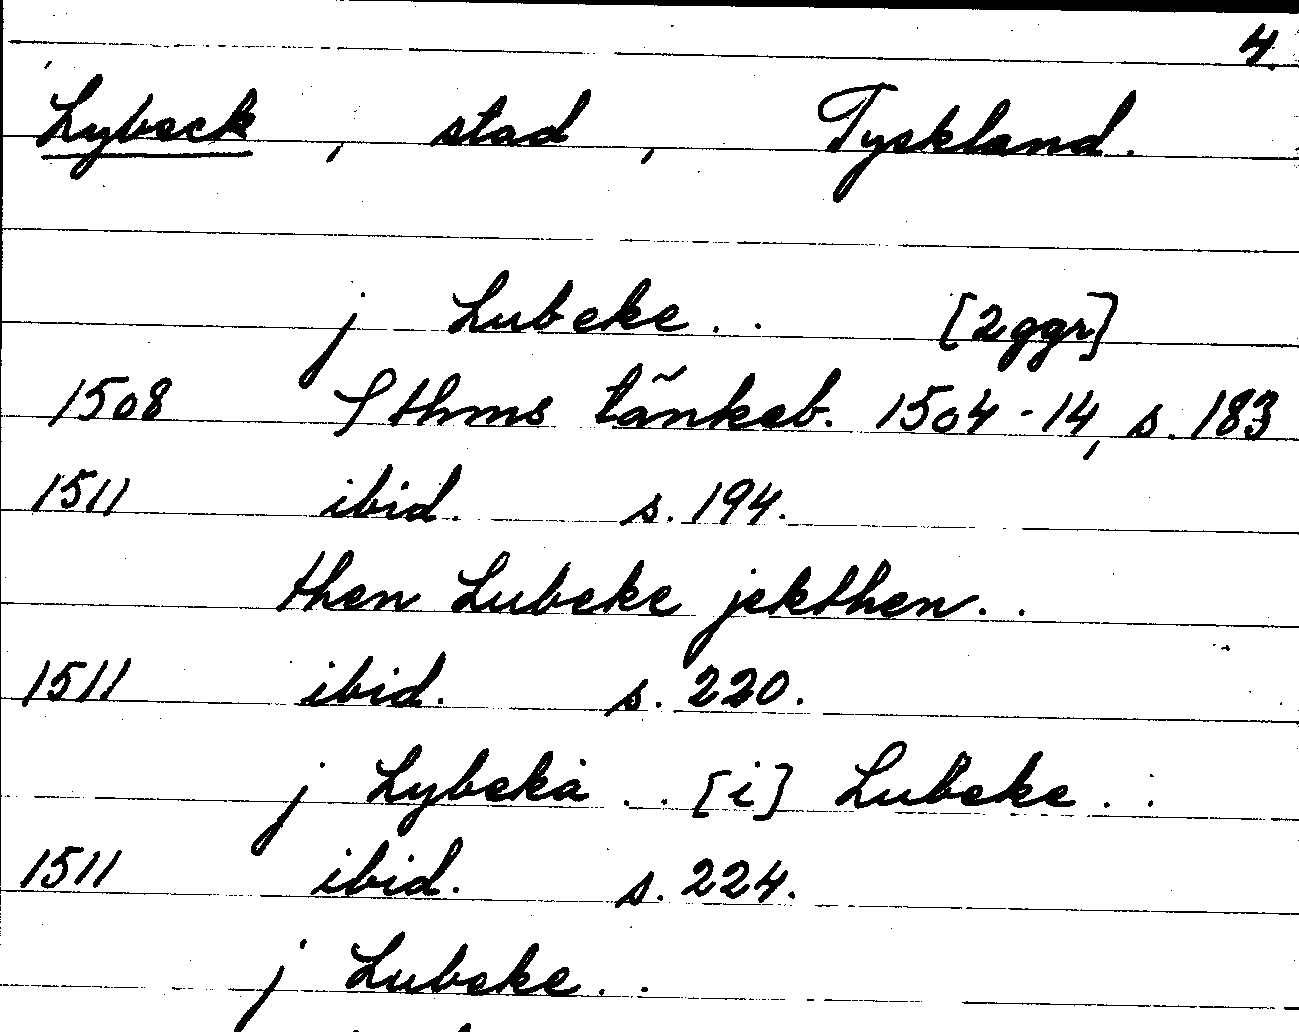 4.
Lybeck, stad, Tyskland.
j Lubeke.. [2ggr]
1508 Sthms tänkeb. 1504-14, s. 183
1511 ibid. s. 194.
then Lubeke jekthen..
1511 ibid. s. 220.
j Lybeka .. [i] Lubeke..
1511 ibid. s. 224.
j Lubeke..